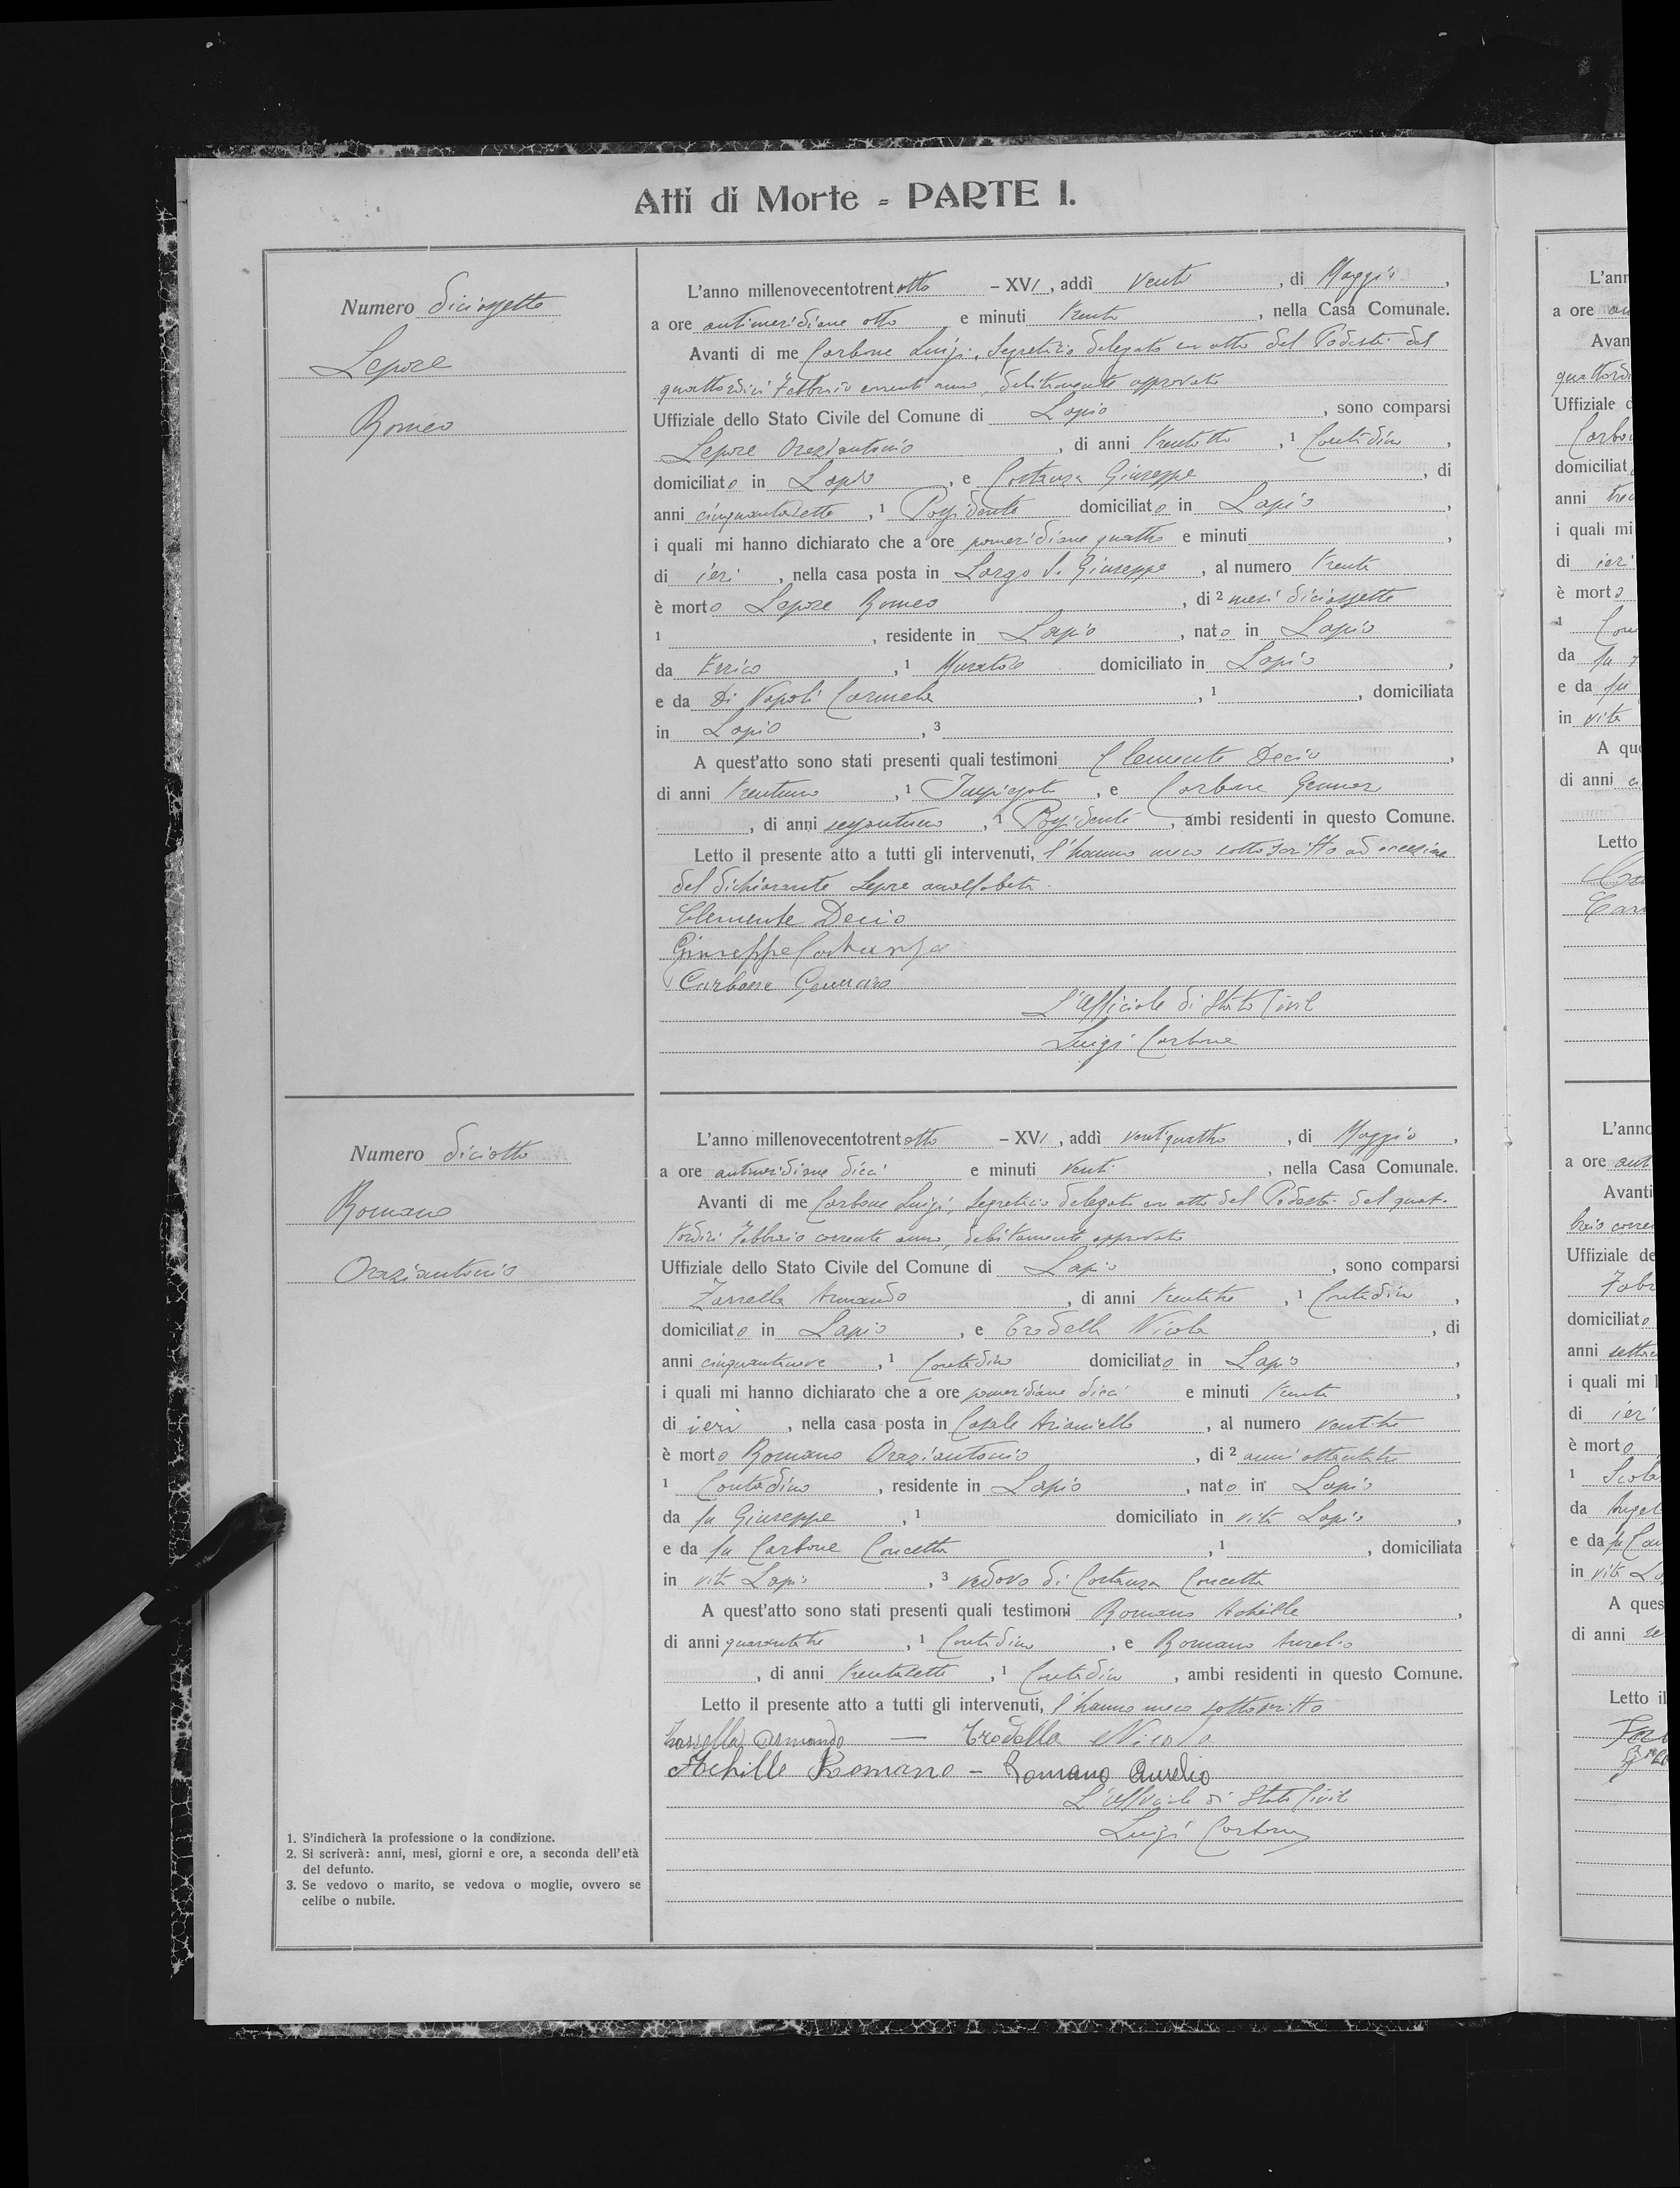 Atti di Morte = PARTE I.
Numero diciassette
Lepore
Romeo
L'anno millenovecentotrentotto – XVI, addì venti, di Maggio,
a ore antimeridiane otto e minuti trenta, nella Casa Comunale.
Avanti di me Carbone Luigi, Segretario delegato con atto del Podestà del
quattordici Febbraio corrente anno, debitamente approvato
Uffiziale dello Stato Civile del Comune di Lapio, sono comparsi
Lepore Oraziantonio, di anni trentotto, 1 Contadino,
domiciliato in Lapio, e Costanza Giuseppe, di
anni cinquantasette, 1 Possidente domiciliato in Lapio,
i quali mi hanno dichiarato che a ore pomeridiane quattro e minuti ,
di ieri, nella casa posta in Largo S. Giuseppe, al numero trenta
è morto Lepore Romeo, di 2 mesi diciassette
1 , residente in Lapio, nato in Lapio
da Errico, 1 Muratore domiciliato in Lapio,
e da Di Napoli Carmela, 1 , domiciliata
in Lapio, 3
A quest'atto sono stati presenti quali testimoni Clemente Decio,
di anni trentuno, 1 Impiegato, e Carbone Gennaro
, di anni sessantuno, 1 Possidente, ambi residenti in questo Comune.
Letto il presente atto a tutti gli intervenuti, l'hanno meco sottoscritto ad eccezione
del dichiarante Lepore analfabeta.
Clemente Decio
Giuseppe Costanza
Carbone Gennaro
L'Ufficiale di Stato Civile
Luigi Carbone
Numero diciotto
Romano
Oraziantonio
L'anno millenovecentotrentotto – XVI, addì ventiquattro, di Maggio,
a ore antimeridiane dieci e minuti venti, nella Casa Comunale.
Avanti di me Carbone Luigi, Segretario delegato con atto del Podestà del quat-
tordici Febbraio corrente anno, debitamente approvato
Uffiziale dello Stato Civile del Comune di Lapio, sono comparsi
Zarrella Armando, di anni trentatre, 1 Contadino,
domiciliato in Lapio, e Trodella Nicola, di
anni cinquantanove, 1 Contadino domiciliato in Lapio,
i quali mi hanno dichiarato che a ore pomeridiane dieci e minuti trenta,
di ieri, nella casa posta in Casale Arianiello, al numero ventitre
è morto Romano Oraziantonio, di 2 anni ottantatre
1 Contadino, residente in Lapio, nato in Lapio
da fu Giuseppe, 1 domiciliato in vita Lapio,
e da fu Carbone Concetta, 1 , domiciliata
in vita Lapio, 3 vedovo di Costanza Concetta
A quest'atto sono stati presenti quali testimoni Romano Achille,
di anni quarantatre, 1 Contadino, e Romano Aurelio
, di anni trentasette, 1 Contadino, ambi residenti in questo Comune.
Letto il presente atto a tutti gli intervenuti, l'hanno meco sottoscritto
Zarrella Armando — Trodella Nicola
Achille Romano – Romano Aurelio
L'Ufficiale di Stato Civile
Luigi Carbone
1. S'indicherà la professione o la condizione.
2. Si scriverà: anni, mesi, giorni e ore, a seconda dell'età
del defunto.
3. Se vedovo o marito, se vedova o moglie, ovvero se
celibe o nubile.